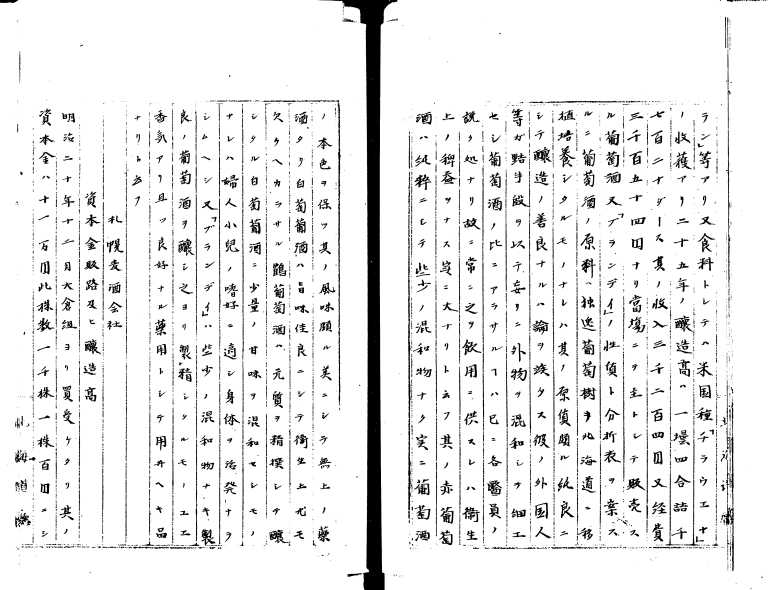 ラン」等アリ又食料トシテハ米国種「チラウエナ」
ノ收穫アリ二十五年ノ醸造高ハ一壜四合詰千
七百二十ダース其ノ收入三千二百四円又経費
三千百五十四円ナリ當場ニテ主トシテ販売ス
ル葡萄酒又「ブランデイ」ノ性質ト分析表ヲ案ス
ルニ葡萄酒ノ原料ハ独逸葡萄樹ヲ北海道ニ移
植培養シタルモノナレハ其ノ原質頗ル純良ニ
シテ醸造ノ善良ナルハ論ヲ俟タス彼ノ外国人
等ガ黠手段ヲ以テ妄リニ外物ヲ混和シテ細工
セシ葡萄酒ノ比ニアラサルヿハ已ニ各醫員ノ
説ク処ナリ故ニ常ニ之ヲ飲用ニ供スレハ衛生
上ノ稗益ヲナス豈ニ大ナリト云フ其ノ赤葡萄
酒ハ純粋ニシテ些少ノ混和物ナク実ニ葡萄酒
ノ本色ヲ保ツ其ノ風味頗ル美ニシテ無上ノ藥
酒タリ白葡萄酒ハ旨味佳良ニシテ衛生上尤モ
欠クヘカラサル鶏葡萄酒ハ元質ヲ精撰シテ醸
シタル白葡萄酒ニ少量ノ甘味ヲ混和セシモノ
ナレハ婦人小兒ノ嗜好ニ適シ身体ヲ活発ナラ
シムヘシ又「ブランデイ」ハ些少ノ混和物ナキ製
良ノ葡萄酒ヲ醸シ之ヨリ製精シタルモノユエ
香気アリ且ツ良好ナル藥用トシテ用井ヘキ品
ナリト云フ
札幌麦酒会社
資本金販路及ヒ醸造高
明治二十年十二月大倉組ヨリ買受ケタリ其ノ
資本金ハ十一万円此株数一千株一株百円ニシ
北海道廳